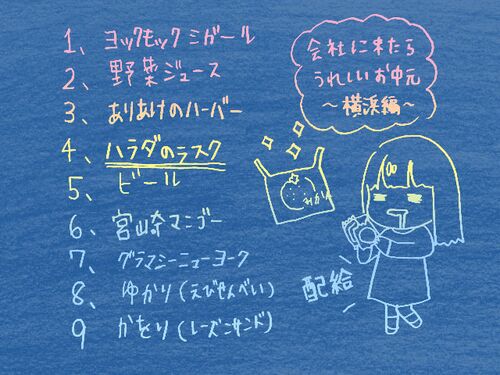 1、ヨックモックシガール
2、野菜ジュース
3、ありあけのハーバー
4、ハラダのラスク
5、ビール
6、宮崎マンゴー
7、グラマシーニューヨーク
8、ゆかり(えびせんべい)
9 かをり(レーズンサンド)
会社に来たら
うれしいお中元
〜横浜編〜
みかん
配給